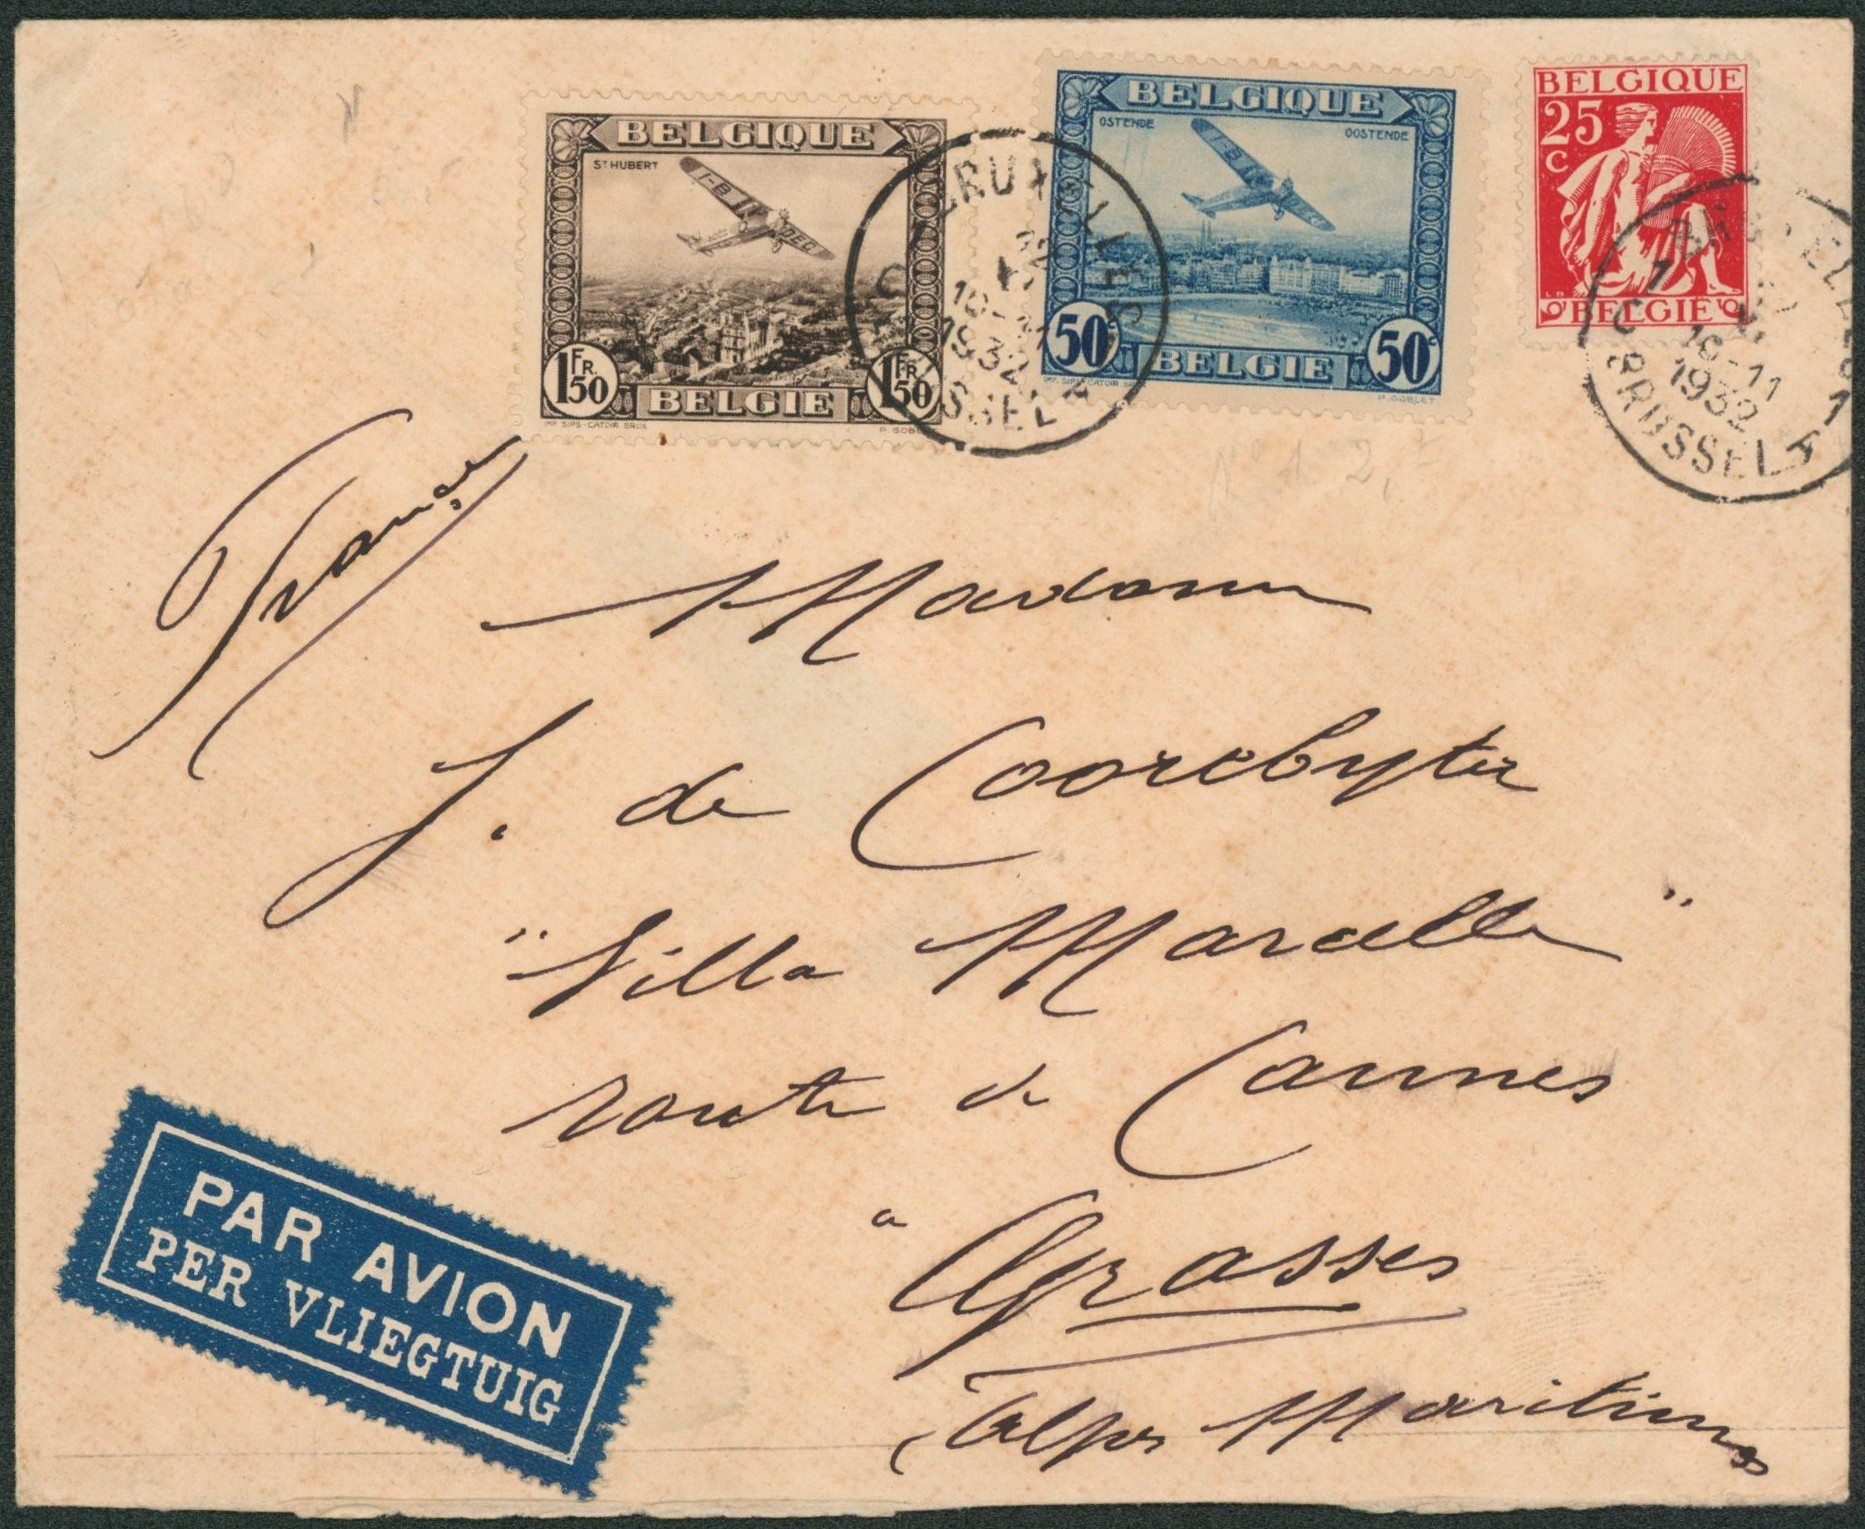 BELGIQUE
ST HUBERT
1 FR. 50
1 FR. 50
BELGIE
IMP. SIPS-CATOIR BRUX
BELGIQUE
OSTENDE OOSTENDE
50c 50c
BELGIE
P. GOBLET
BELGIQUE
25
C
BELGIE
BRUXELLES
10-11
1932
BRUXELLES 1
10-11
1932
BRUSSEL
France
Madame
J. de Coorebyter
"Villa Marcelle"
route de Cannes
à Grasses
(Alpes Maritimes
PAR AVION
PER VLIEGTUIG